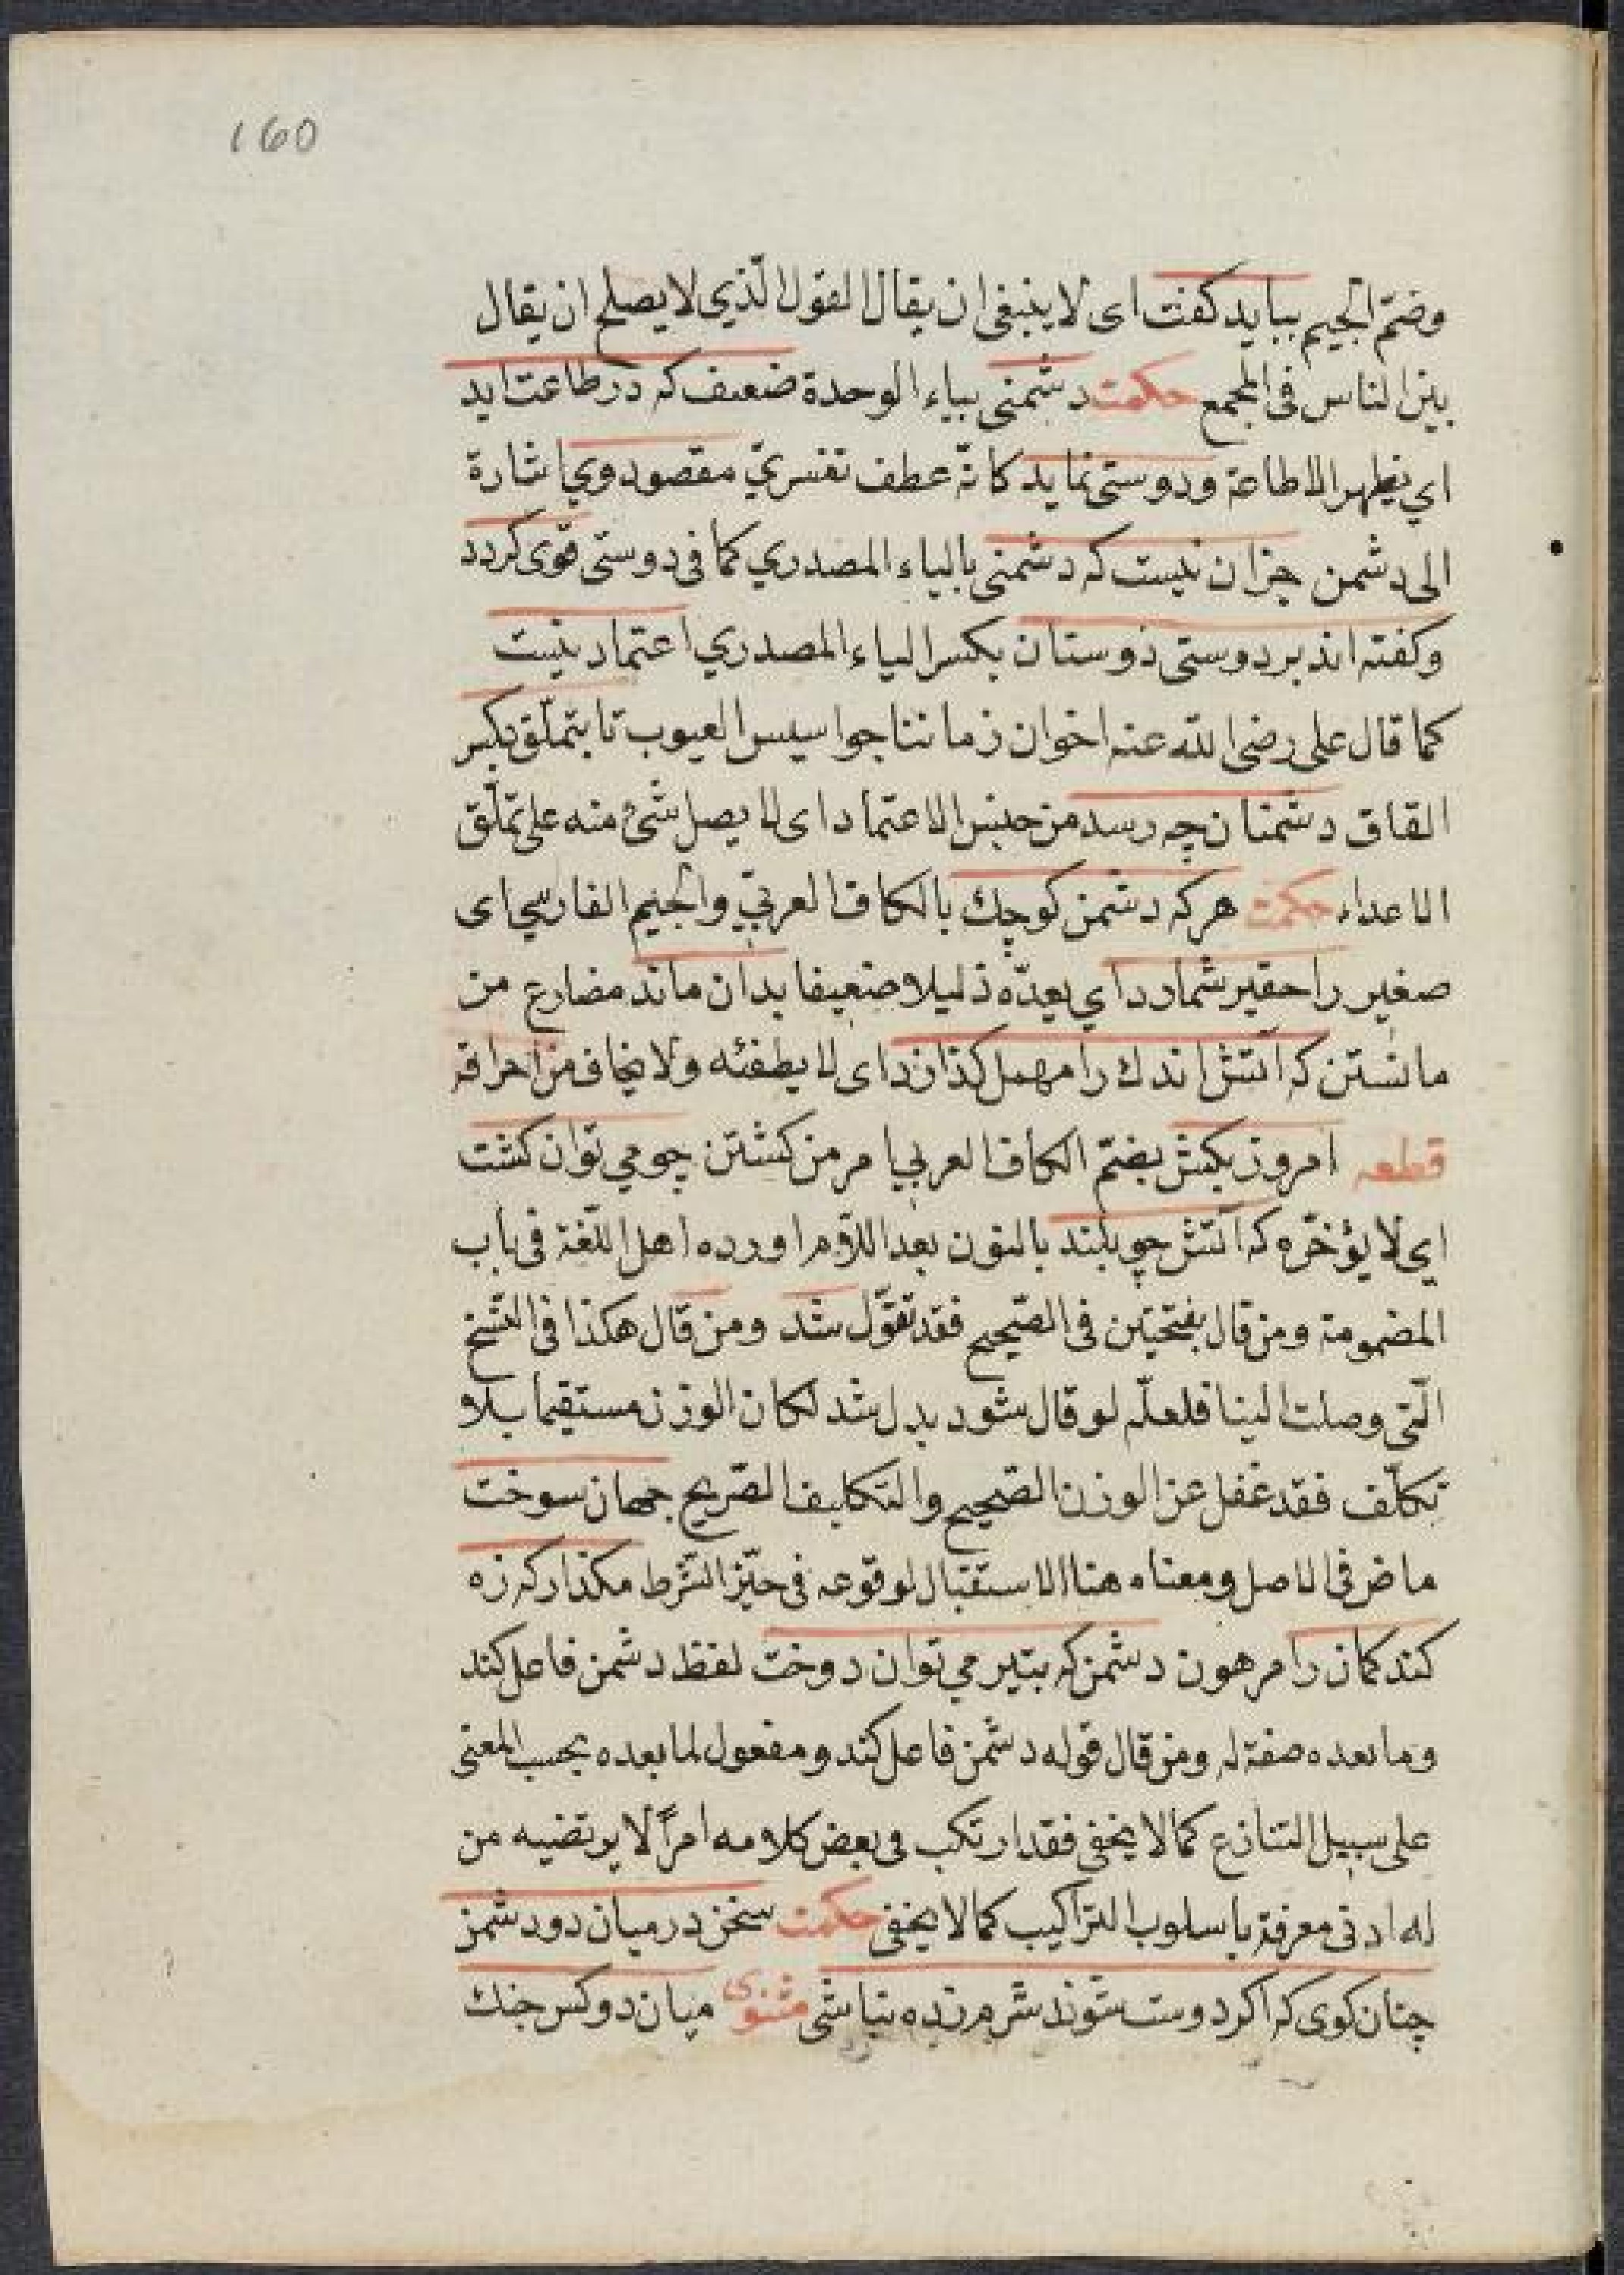 160
وضمّ الجيم ببايد كفت اى لا ينبغى ان يقال القول الّذي لا يصلح ان يقال
بين الناس فى المجمع حكمت دشمنى بياء الوحدة ضعيف كه در طاعت ايد
اي يظهر الاطاعة ودوستى نمايد كانّه عطف تفسريّ مقصود وي اشارة
الى دشمن جزان نيست كه دشمنى بالياء المصدري كما فى دوستى قوى كردد
وكفته اند بر دوستى دوستان بكسر الياء المصدري اعتماد نيست
كما قال على رضى الله عنه اخوان زماننا جواسيس العيوب تا بتملّق بكسر
القاق دشمنان چه رسد من جنس الاعتماد اى لا يصل شئ منه على تملّق
الاعداء حكمت هركه دشمن كوچك بالكاف العربيّ والجيم الفارسي اى
صغير را حقير شمارد اي يعدّه ذليلا وضعيفا بدان ماند مضارع من
مانستن كه اتش اندك را مهمل كذارد اى لا يطفئه ولا يخاف من احراقه
قطعه امروز بكش بضمّ الكاف العربي امر من كشتن چو مي توان كشت
اي لا يؤخّره كه اتش چو بلند بالنون بعد اللاّم اورده اهل اللّغة فى باب
المضمومة ومن قال بفتحتين فى الصّحيح فقد تقوّل شد ومن قال هكذا فى النّسخ
الّتى وصلت الينا فلعلّه لو قال شود بدل شد لكان الوزن مستقيما بلا
تكلّف فقد غفل عن الوزن الصّحيح والتكليف الصّريح جهان سوخت
ماض فى الاصل ومعناه هنا الاستقبال لوقوعه فى حيّز الشّرط مكذار كه زه
كند كمان را مرهون دشمن كه بتير مي توان دوخت لفظ دشمن فاعل كند
وما بعده صفة له ومن قال قوله دشمن فاعل كند ومفعول لما بعده بحسب المعنى
على سبيل التنازع كما لا يخفى فقد ارتكب فى بعض كلامه امرًا لا يرتضيه من
له ادنى معرفة باسلوب التراكيب كما لا يخفى حكمت سخن در ميان دو دشمن
چنان كوى كه اكر دوست شوند شرمزده نباشى مثنوى ميان دو كس جنك